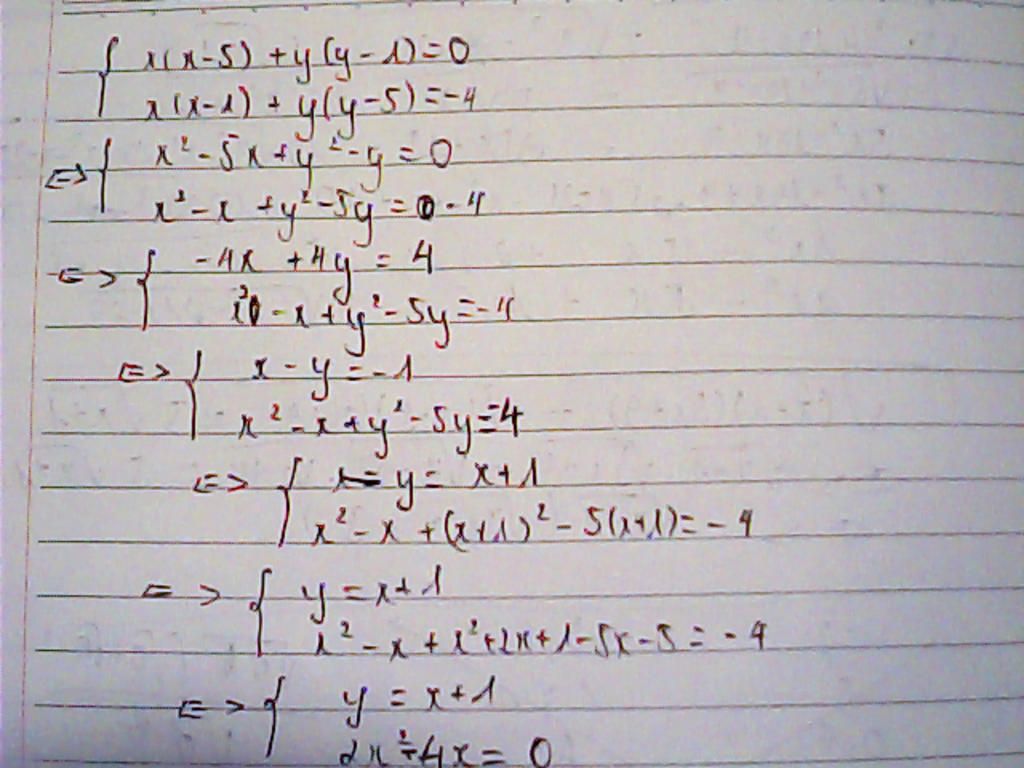 { x(x-5) + y(y-1) = 0
x(x-1) + y(y-5) = -4
<=> { x² - 5x + y² - y = 0
x² - x + y² - 5y = 0 - 4
<=> { -4x + 4y = 4
x² - x + y² - 5y = -4
<=> { x - y = -1
x² - x + y² - 5y = -4
<=> { y = x+1
x² - x + (x+1)² - 5(x+1) = -4
<=> { y = x+1
x² - x + x² + 2x + 1 - 5x - 5 = -4
<=> { y = x+1
2x² - 4x = 0